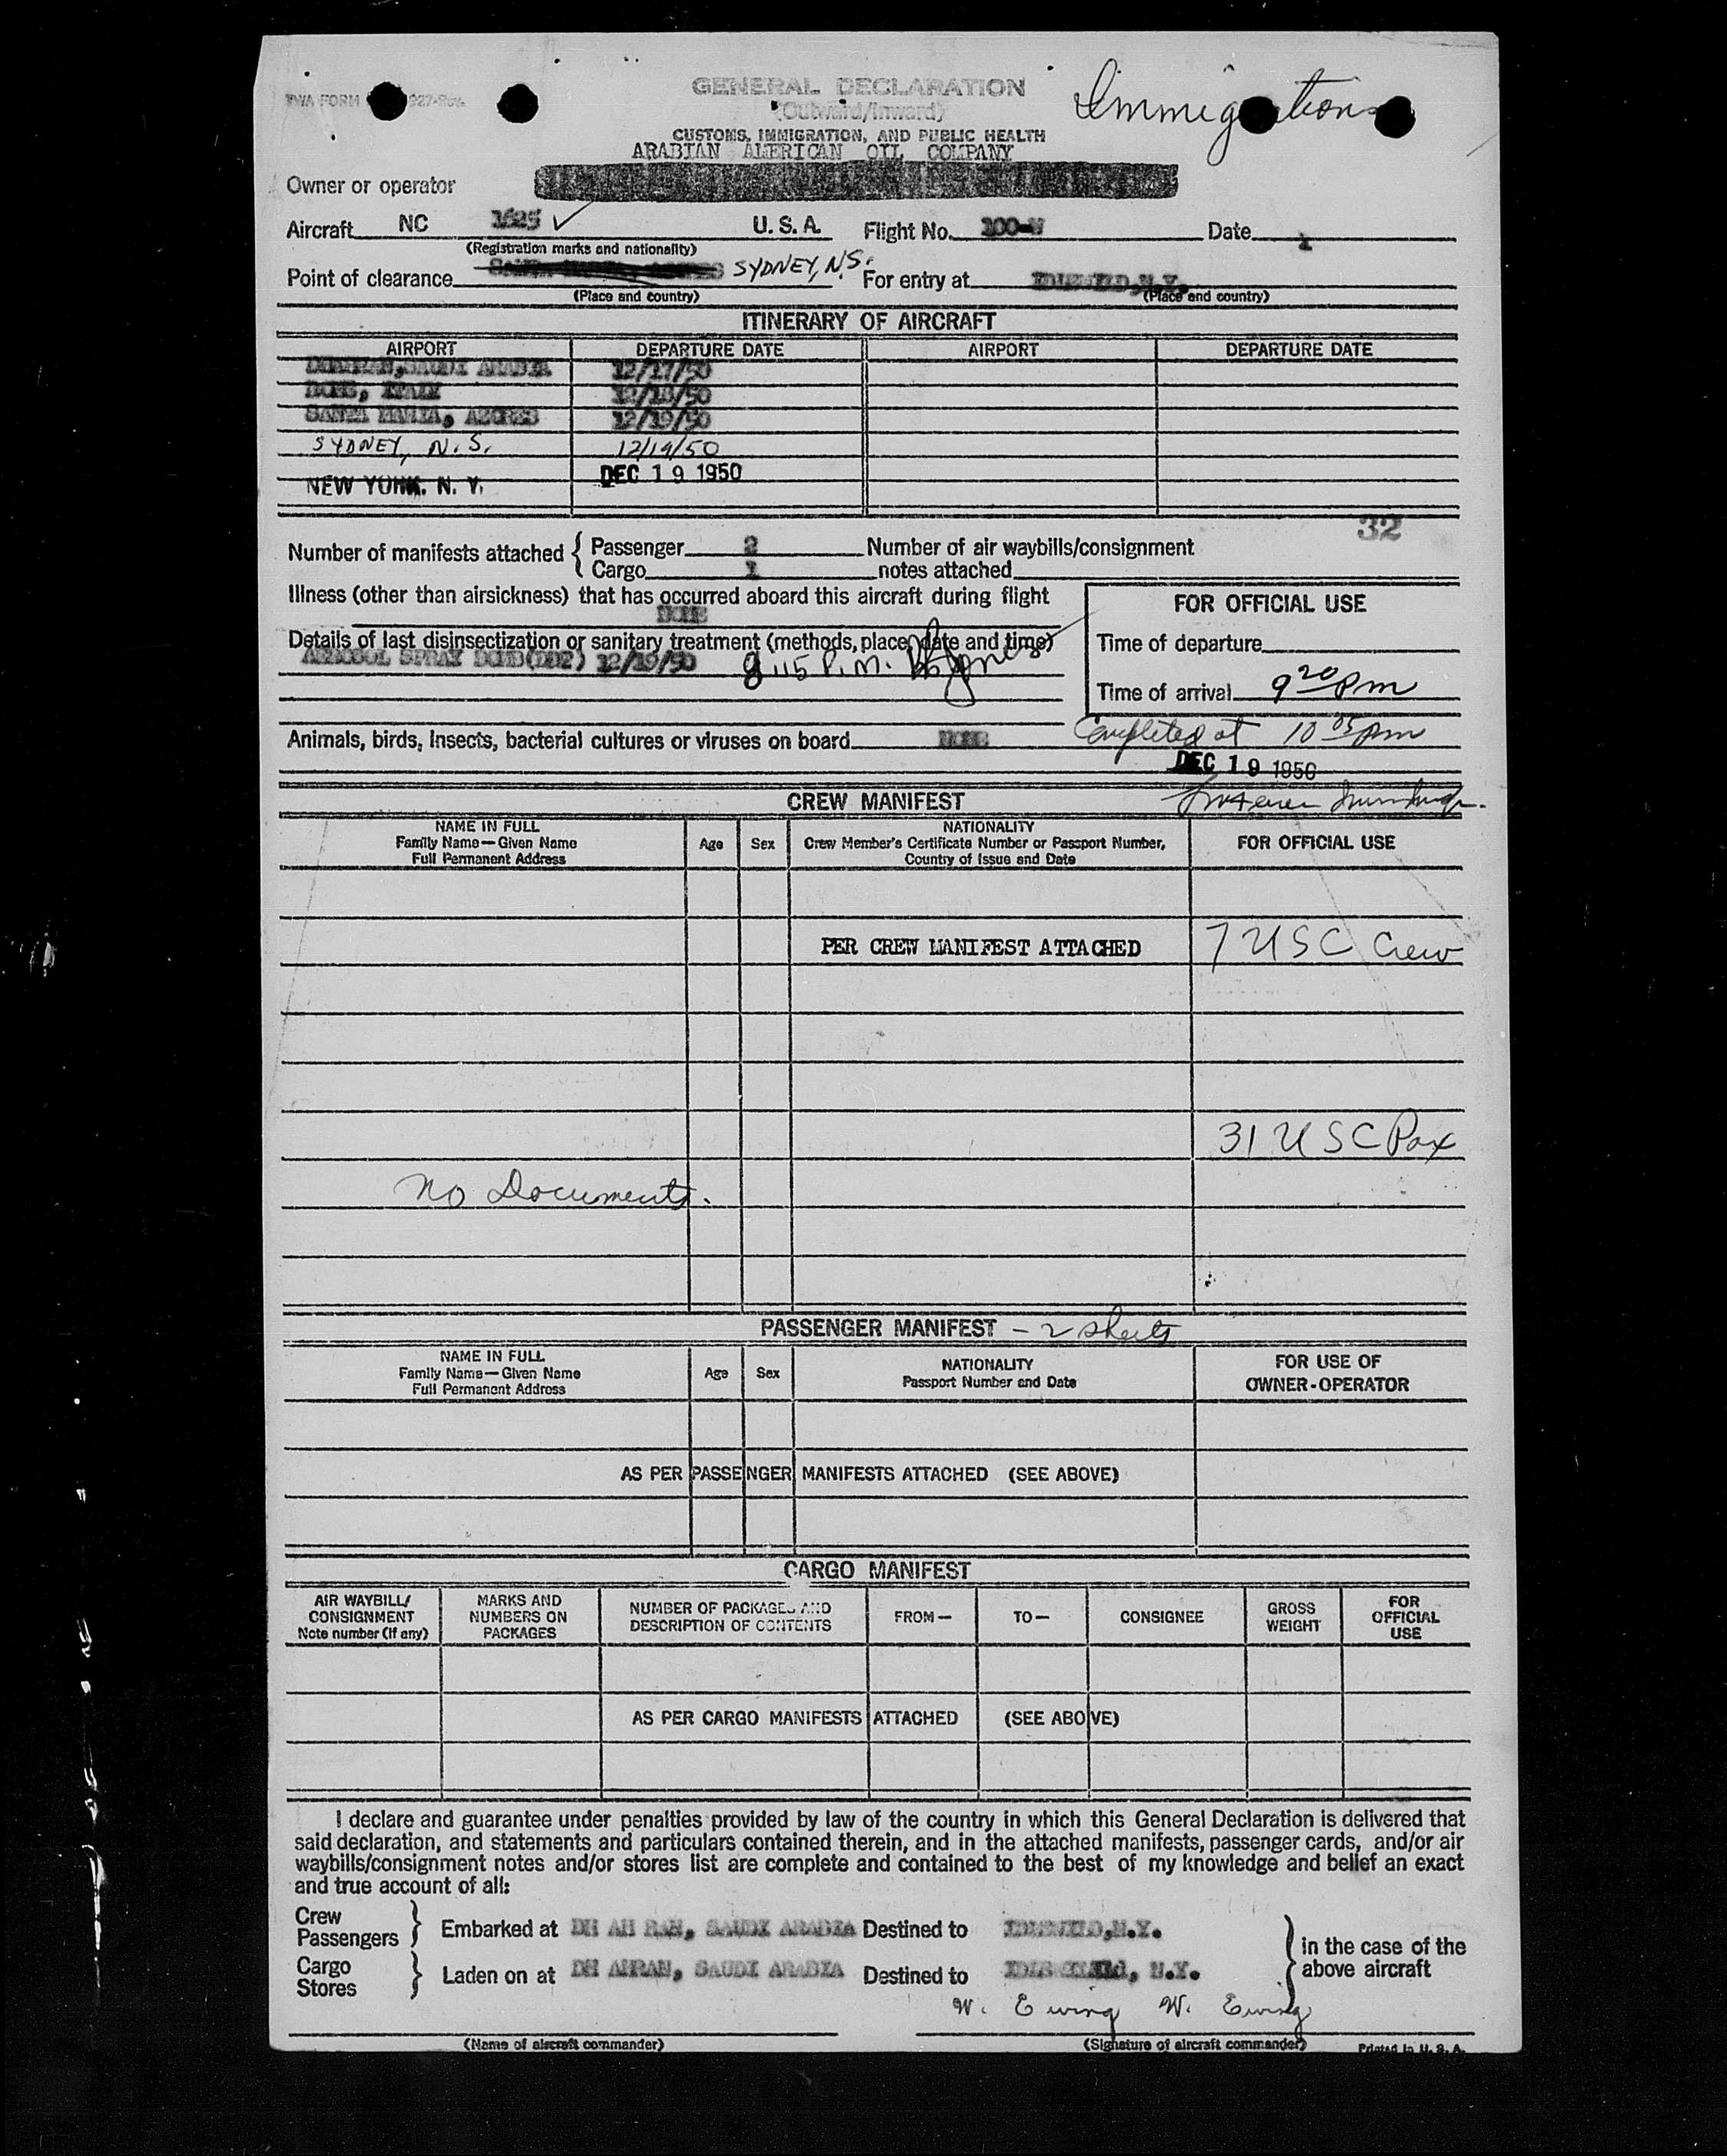 TWA FORM 927-Rev.
GENERAL DECLARATION
(Outward/Inward)
Immigration
CUSTOMS, IMMIGRATION, AND PUBLIC HEALTH
ARABIAN AMERICAN OIL COMPANY
Owner or operator
Aircraft NC 1625 ✓ U. S. A. Flight No. 100-W Date
(Registration marks and nationality)
Point of clearance SYDNEY, N.S. For entry at IDLEWILD, N.Y.
(Place and country) (Place and country)
ITINERARY OF AIRCRAFT
AIRPORT DEPARTURE DATE AIRPORT DEPARTURE DATE
DHAHRAN, SAUDI ARABIA 12/17/50
ROME, ITALY 12/18/50
SANTA MARIA, AZORES 12/19/50
SYDNEY, N.S. 12/19/50
NEW YORK. N. Y. DEC 19 1950
32
Number of manifests attached { Passenger 2 Number of air waybills/consignment
Cargo 1 notes attached
Illness (other than airsickness) that has occurred aboard this aircraft during flight
NONE
FOR OFFICIAL USE
Details of last disinsectization or sanitary treatment (methods, place, date and time)
AEROSOL SPRAY BOMB(DDT) 12/19/50 8:15 P.M.
Time of departure
Time of arrival 9 20 pm
Animals, birds, insects, bacterial cultures or viruses on board NONE
Completed at 10 05 pm
DEC 19 1950
CREW MANIFEST
NAME IN FULL
Family Name—Given Name
Full Permanent Address
Age Sex
NATIONALITY
Crew Member's Certificate Number or Passport Number,
Country of Issue and Date
FOR OFFICIAL USE
PER CREW MANIFEST ATTACHED 7 USC Crew
31 USC Pax
No Documents.
PASSENGER MANIFEST - 2 sheets
NAME IN FULL
Family Name—Given Name
Full Permanent Address
Age Sex
NATIONALITY
Passport Number and Date
FOR USE OF
OWNER-OPERATOR
AS PER PASSENGER MANIFESTS ATTACHED (SEE ABOVE)
CARGO MANIFEST
AIR WAYBILL/
CONSIGNMENT
Note number (if any)
MARKS AND
NUMBERS ON
PACKAGES
NUMBER OF PACKAGES AND
DESCRIPTION OF CONTENTS
FROM— TO— CONSIGNEE
GROSS
WEIGHT
FOR
OFFICIAL
USE
AS PER CARGO MANIFESTS ATTACHED (SEE ABOVE)
I declare and guarantee under penalties provided by law of the country in which this General Declaration is delivered that
said declaration, and statements and particulars contained therein, and in the attached manifests, passenger cards, and/or air
waybills/consignment notes and/or stores list are complete and contained to the best of my knowledge and belief an exact
and true account of all:
Crew
Passengers } Embarked at DH AH RAN, SAUDI ARABIA Destined to IDLEWILD, N.Y.
Cargo
Stores } Laden on at DH AHRAN, SAUDI ARABIA Destined to IDLEWILD, N.Y.
} in the case of the
above aircraft
W. Ewing W. Ewing
(Name of aircraft commander) (Signature of aircraft commander) Printed in U. S. A.